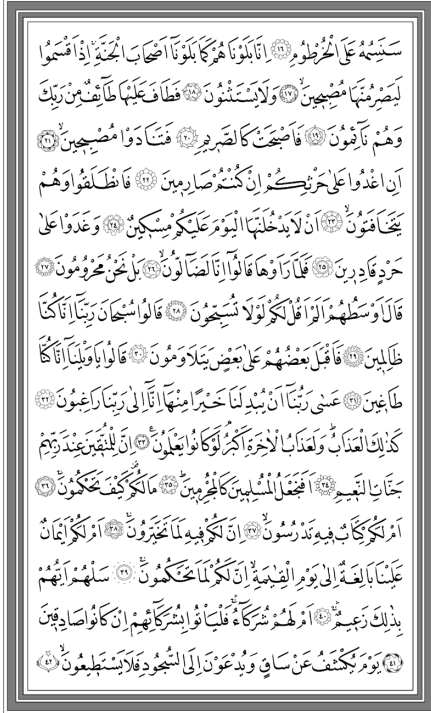 سَنَسِمُهُ عَلَى الْخُرْطُومِ ﴿١٦﴾ اِنَّا بَلَوْنَاهُمْ كَمَا بَلَوْنَٓا اَصْحَابَ الْجَنَّةِۚ اِذْ اَقْسَمُوا
لَيَصْرِمُنَّهَا مُصْبِحٖينَۙ ﴿١٧﴾ وَلَا يَسْتَثْنُونَ ﴿١٨﴾ فَطَافَ عَلَيْهَا طَٓائِفٌ مِنْ رَبِّكَ
وَهُمْ نَٓائِمُونَ ﴿١٩﴾ فَاَصْبَحَتْ كَالصَّرٖيمِۙ ﴿٢٠﴾ فَتَنَادَوْا مُصْبِحٖينَۙ ﴿٢١﴾
اَنِ اغْدُوا عَلٰى حَرْثِكُمْ اِنْ كُنْتُمْ صَارِمٖينَ ﴿٢٢﴾ فَانْطَلَقُوا وَهُمْ
يَتَخَافَتُونَۙ ﴿٢٣﴾ اَنْ لَا يَدْخُلَنَّهَا الْيَوْمَ عَلَيْكُمْ مِسْكٖينٌۙ ﴿٢٤﴾ وَغَدَوْا عَلٰى
حَرْدٍ قَادِرٖينَ ﴿٢٥﴾ فَلَمَّا رَاَوْهَا قَالُٓوا اِنَّا لَضَٓالُّونَۙ ﴿٢٦﴾ بَلْ نَحْنُ مَحْرُومُونَ ﴿٢٧﴾
قَالَ اَوْسَطُهُمْ اَلَمْ اَقُلْ لَكُمْ لَوْلَا تُسَبِّحُونَ ﴿٢٨﴾ قَالُوا سُبْحَانَ رَبِّنَٓا اِنَّا كُنَّا
ظَالِمٖينَ ﴿٢٩﴾ فَاَقْبَلَ بَعْضُهُمْ عَلٰى بَعْضٍ يَتَلَاوَمُونَ ﴿٣٠﴾ قَالُوا يَا وَيْلَنَٓا اِنَّا كُنَّا
طَاغٖينَ ﴿٣١﴾ عَسٰى رَبُّنَٓا اَنْ يُبْدِلَنَا خَيْرًا مِنْهَٓا اِنَّٓا اِلٰى رَبِّنَا رَاغِبُونَ ﴿٣٢﴾
كَذٰلِكَ الْعَذَابُۜ وَلَعَذَابُ الْاٰخِرَةِ اَكْبَرُۢ لَوْ كَانُوا يَعْلَمُونَ۟ ﴿٣٣﴾ اِنَّ لِلْمُتَّقٖينَ عِنْدَ رَبِّهِمْ
جَنَّاتِ النَّعٖيمِ ﴿٣٤﴾ اَفَنَجْعَلُ الْمُسْلِمٖينَ كَالْمُجْرِمٖينَۜ ﴿٣٥﴾ مَا لَكُمْ۠ كَيْفَ تَحْكُمُونَۚ ﴿٣٦﴾
اَمْ لَكُمْ كِتَابٌ فٖيهِ تَدْرُسُونَۙ ﴿٣٧﴾ اِنَّ لَكُمْ فٖيهِ لَمَا تَخَيَّرُونَۚ ﴿٣٨﴾ اَمْ لَكُمْ اَيْمَانٌ
عَلَيْنَا بَالِغَةٌ اِلٰى يَوْمِ الْقِيٰمَةِۙ اِنَّ لَكُمْ لَمَا تَحْكُمُونَۚ ﴿٣٩﴾ سَلْهُمْ اَيُّهُمْ
بِذٰلِكَ زَعٖيمٌۚۛ ﴿٤٠﴾ اَمْ لَهُمْ شُرَكَٓاءُۚۛ فَلْيَأْتُوا بِشُرَكَٓائِهِمْ اِنْ كَانُوا صَادِقٖينَ
﴿٤١﴾ يَوْمَ يُكْشَفُ عَنْ سَاقٍ وَيُدْعَوْنَ اِلَى السُّجُودِ فَلَا يَسْتَطٖيعُونَۙ ﴿٤٢﴾